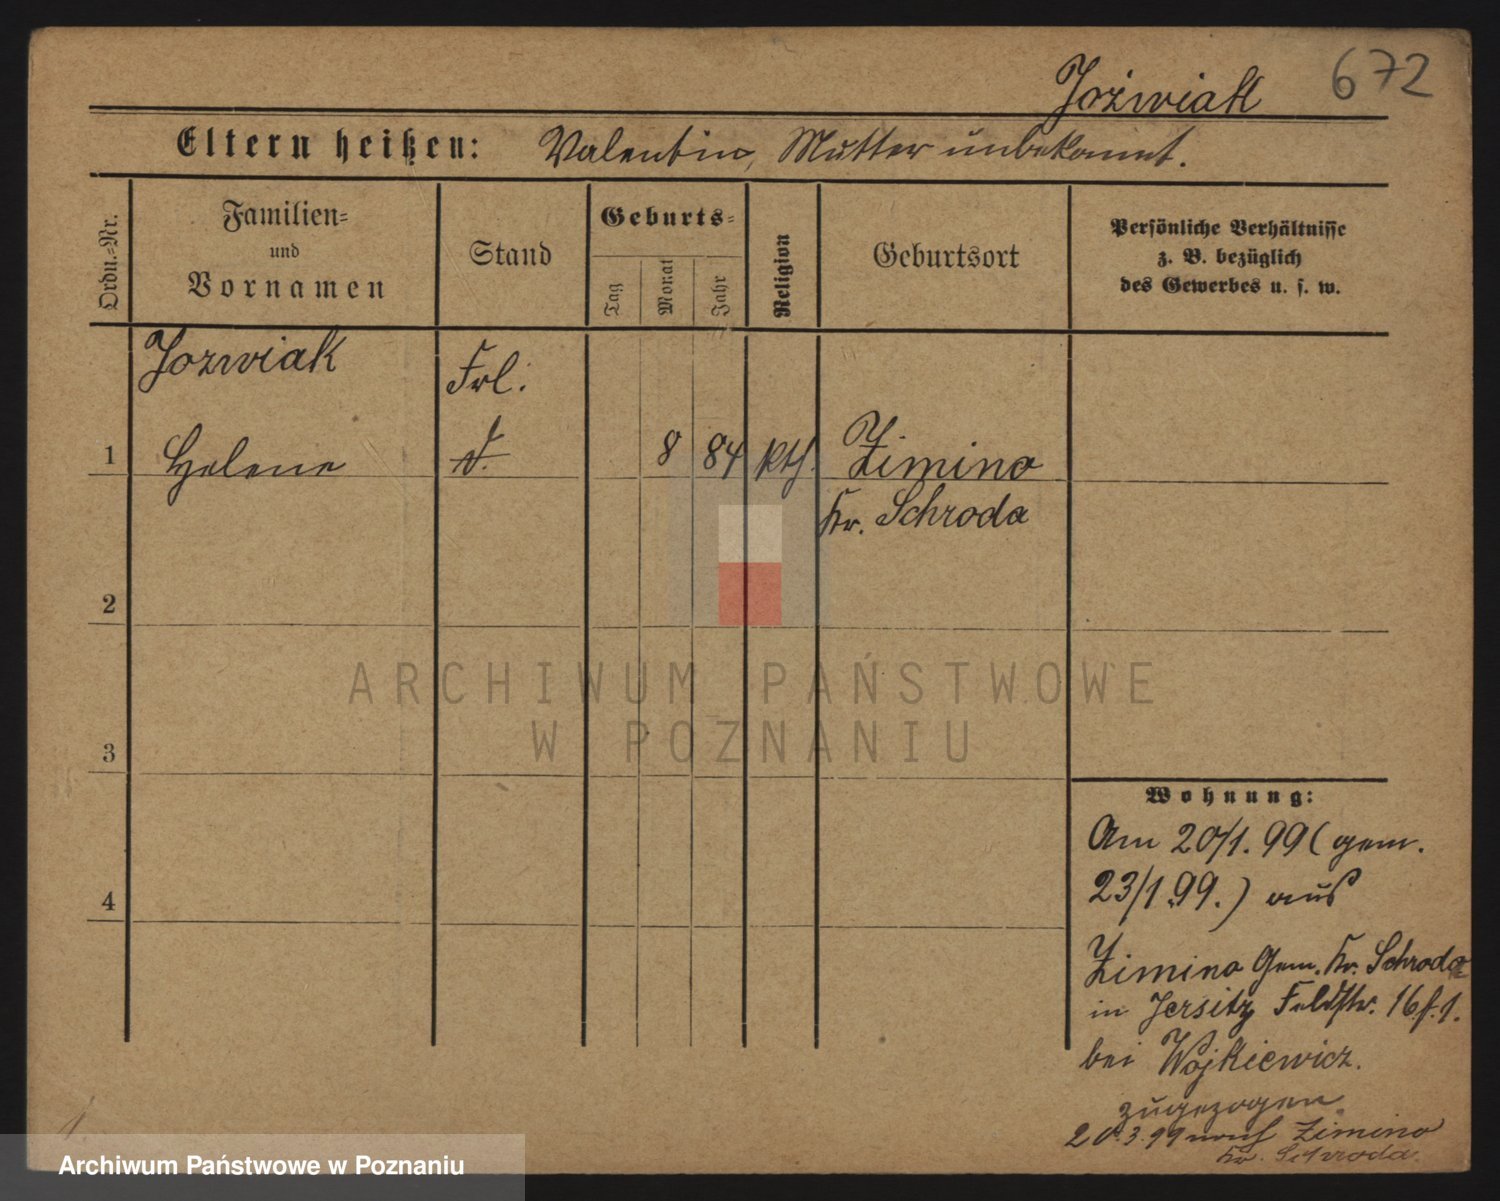 Joźwiak 672
Eltern heißen: Valentin, Mutter unbekannt.
Ordn.=Nr.
Familien=
und
Vornamen
Stand
Geburts=
Tag
Monat
Jahr
Religion
Geburtsort
Persönliche Verhältnisse
z. B. bezüglich
des Gewerbes u. s. w.
Jozwiak
Frl.
1 Helene 8 84 kth. Zimino
Kr. Schroda
2
ARCHIWUM PAŃSTWOWE
W POZNANIU
3
Wohnung:
Am 20/1. 99 (gem.
23/1.99.) aus
4
Zimino Gem. Kr. Schroda
in Jersitz Feldstr. 16
bei Wojkiewicz.
zugezogen.
20.3.99 nach Zimino
Kr. Schroda.
Archiwum Państwowe w Poznaniu